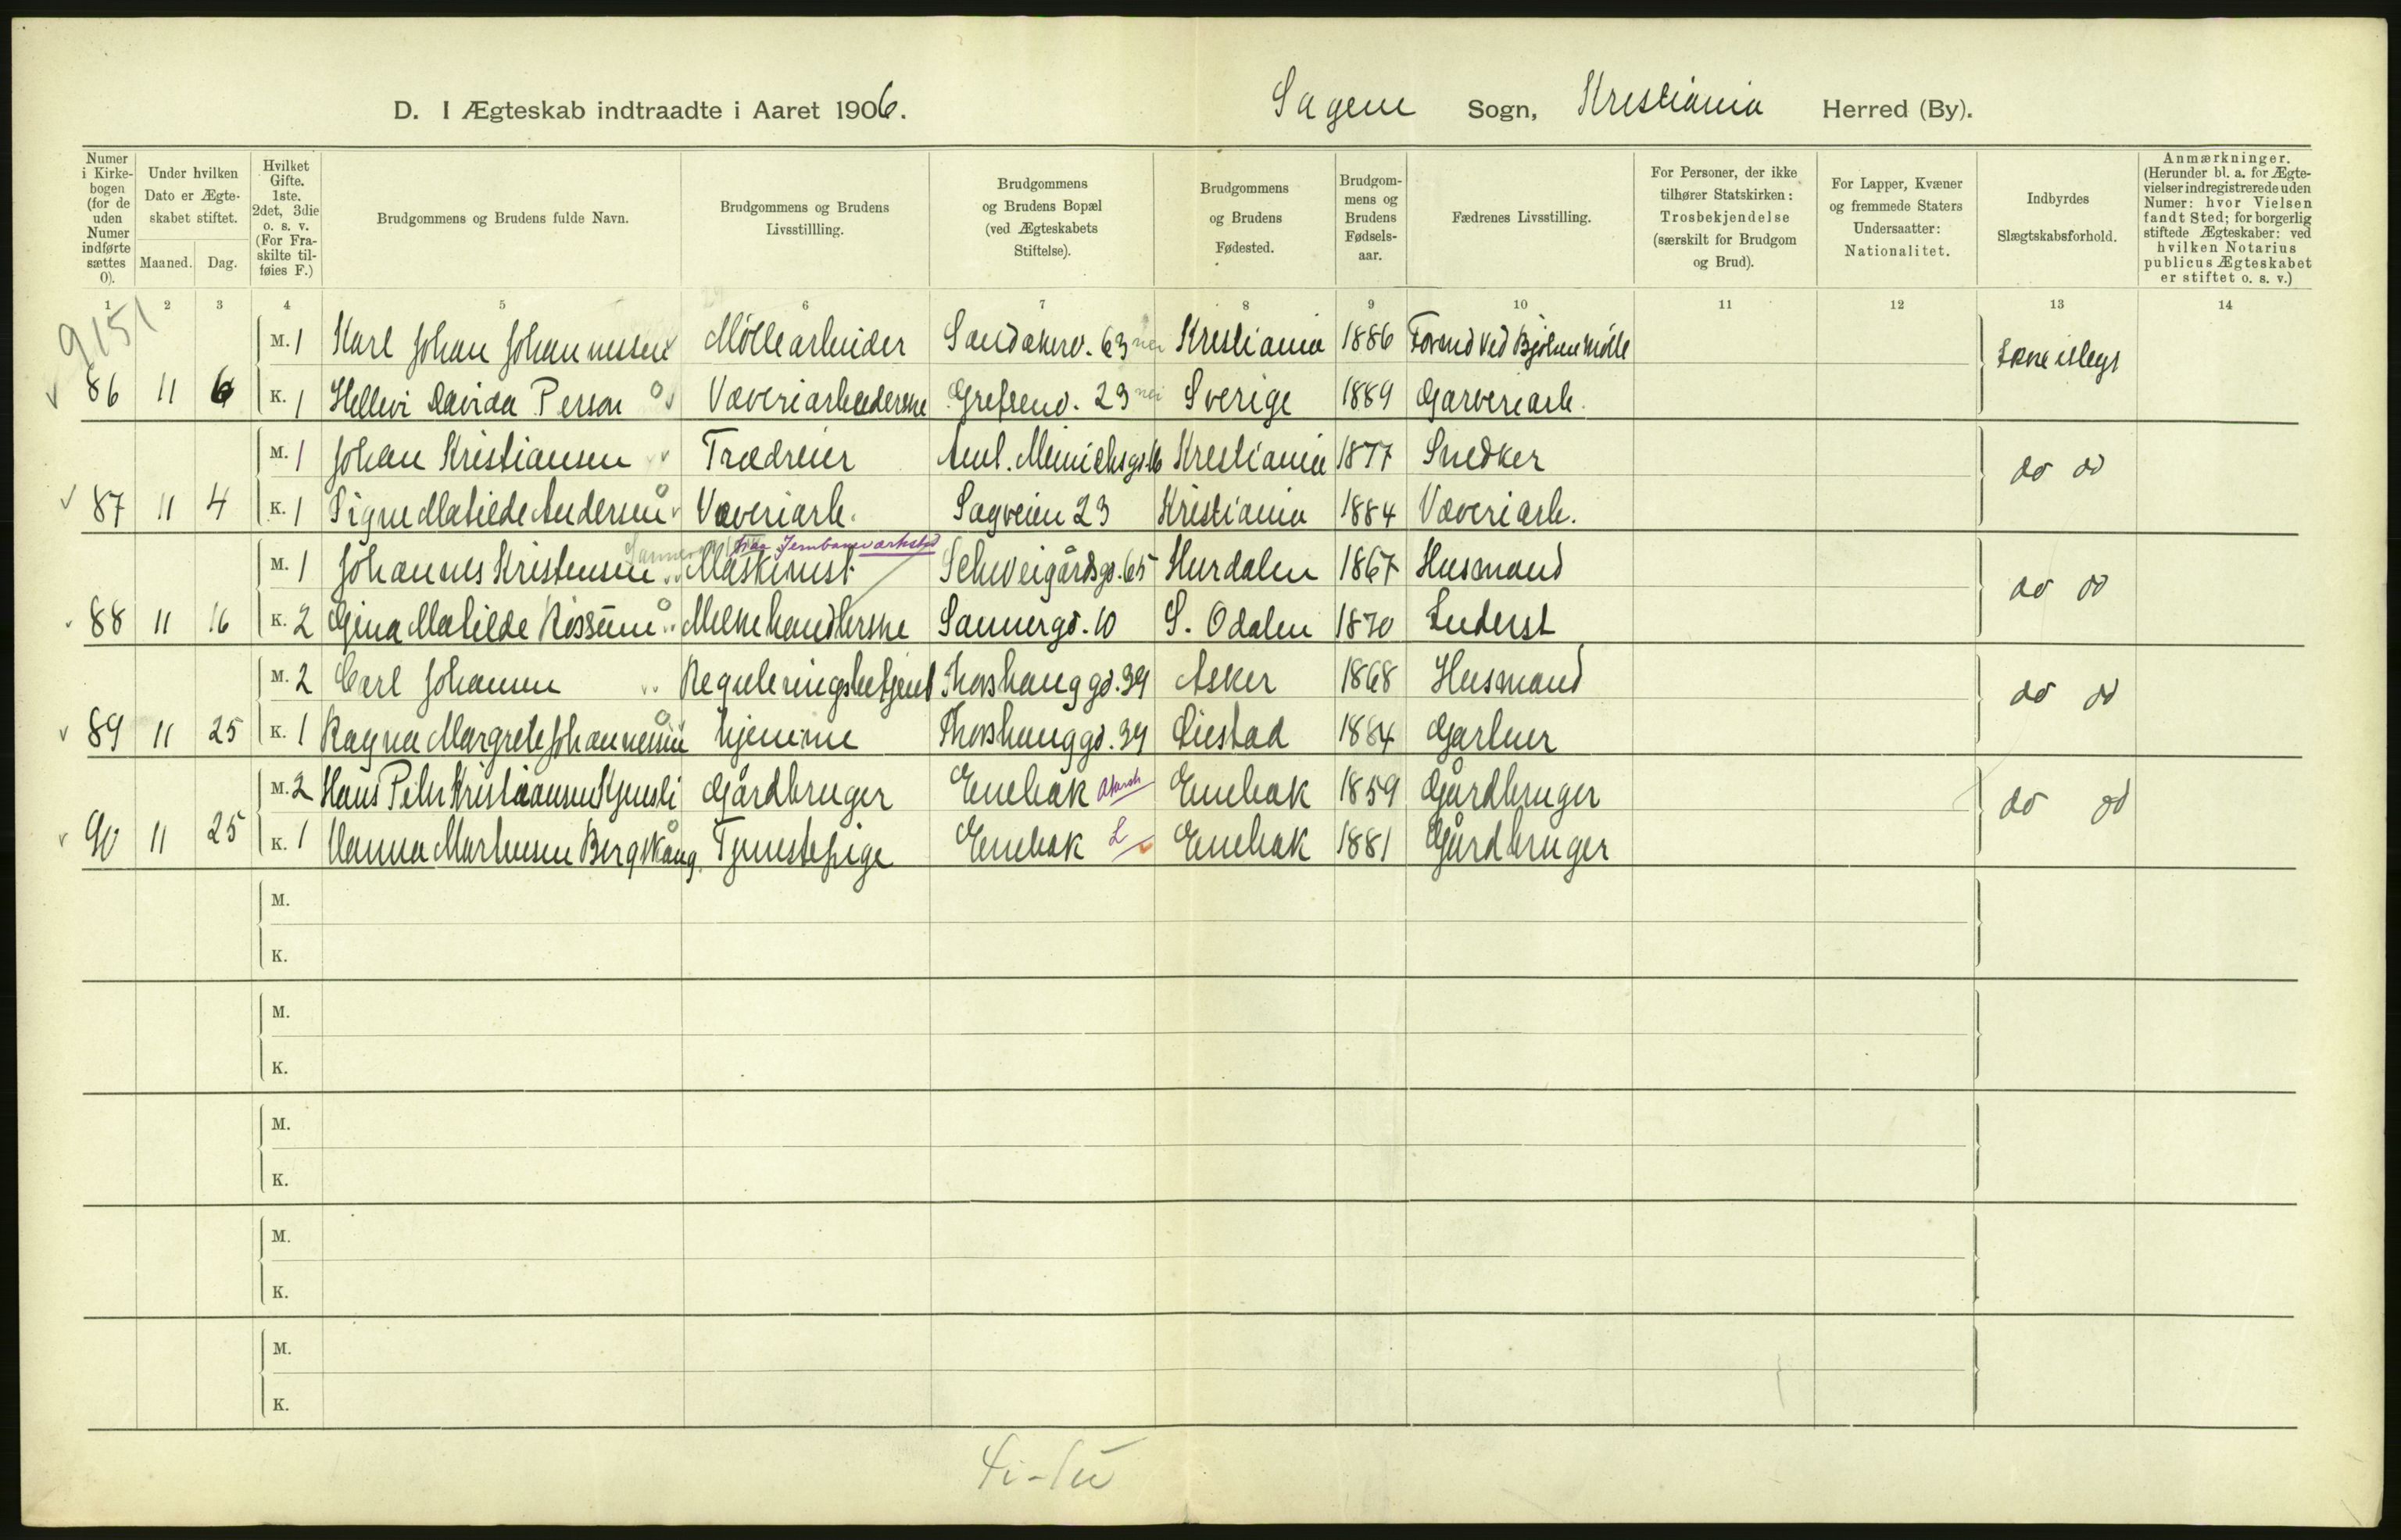 D. I Ægteskab indtraadte i Aaret 1906. Sagene Sogn, Kristiania Herred (By).
Numer i Kirkebogen (for de uden Numer indførte sættes 0).
Under hvilken Dato er Ægteskabet stiftet.
Maaned. Dag.
Hvilket Gifte. 1ste. 2det, 3die o. s. v. (For Fraskilte tilføies F.)
Brudgommens og Brudens fulde Navn.
Brudgommens og Brudens Livsstillling.
Brudgommens og Brudens Bopæl (ved Ægteskabets Stiftelse).
Brudgommens og Brudens Fødested.
Brudgommens og Brudens Fødselsaar.
Fædrenes Livsstilling.
For Personer, der ikke tilhører Statskirken: Trosbekjendelse (særskilt for Brudgom og Brud).
For Lapper, Kvæner og fremmede Staters Undersaatter: Nationalitet.
Indbyrdes Slægtskabsforhold.
Anmærkninger. (Herunder bl. a. for Ægtevielser indregistrerede uden Numer: hvor Vielsen fandt Sted; for borgerlig stiftede Ægteskaber: ved hvilken Notarius publicus Ægteskabet er stiftet o. s. v.)
1 2 3 4 5 6 7 8 9 10 11 12 13 14
9151
M. 1 Karl Johan Johannessen Møllearbeider Sandakerv. 63 nei Kristiania 1886 Formd ved Bjølsen Mølle
Ikke i slegt
86 11 6 K. 1 Hellevi Davida Person Væveriarbeiderske Grefsenv. 23 nei Sverige 1889 Garveriarb.
M. 1 Johan Kristiansen Trædreier Aml. Meinichsgt 16 Kristiania 1877 Snedker
do do
87 11 4 K. 1 Signe Matilde Andersen Væveriarb. Sagveien 23 Kristiania 1884 Væveriarb.
Jernbaneværksted
M. 1 Johannes Kristensen Maskinist Schweigårdsgd. 65 Hurdalen 1867 Husmand
do do
88 11 16 K. 2 Gina Matilde Rossum Melkehandlerske Sannergd. 10 S. Odalen 1870 Inderst
M. 2 Carl Johansen Reguleringsbetjent Thorshauggd. 39 Asker 1868 Husmand
do do
89 11 25 K. 1 Ragna Margrete Johannesen hjemme Thorshauggd. 39 Liestad 1884 Gartner
M. 2 Hans Peter Kristiansen Kjensli Gårdbruger Enebak Akersh Enebak 1859 Gårdbruger
do do
90 11 25 K. 1 Hanna Martinsen Bergskaug Tjenestepige Enebak L Enebak 1881 Gårdbruger
M.
K.
M.
K.
M.
K.
M.
K.
M.
K.